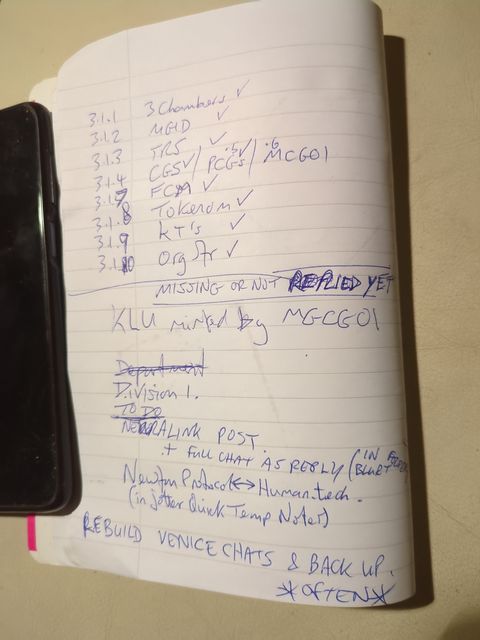 3.1.1 3 Chambers ✓
3.1.2 MGID ✓
3.1.3 TRS ✓
3.1.4 CGS ✓ / .5 PCGs ✓ / .6 MCGO1
3.1.7 FCM ✓
3.1.8 Tokenom ✓
3.1.9 KT's ✓
3.1.10 Org Str ✓
MISSING OR NOT REPLIED YET
KLU minted by MGCGO1
Department
Division 1.
TO DO
NEURALINK POST
+ FULL CHAT AS REPLY (IN
Newton Protocol ↔ Human.tech.
(in Jotter Quick Temp Notes)
REBUILD VENICE CHATS & BACK UP.
*OFTEN*